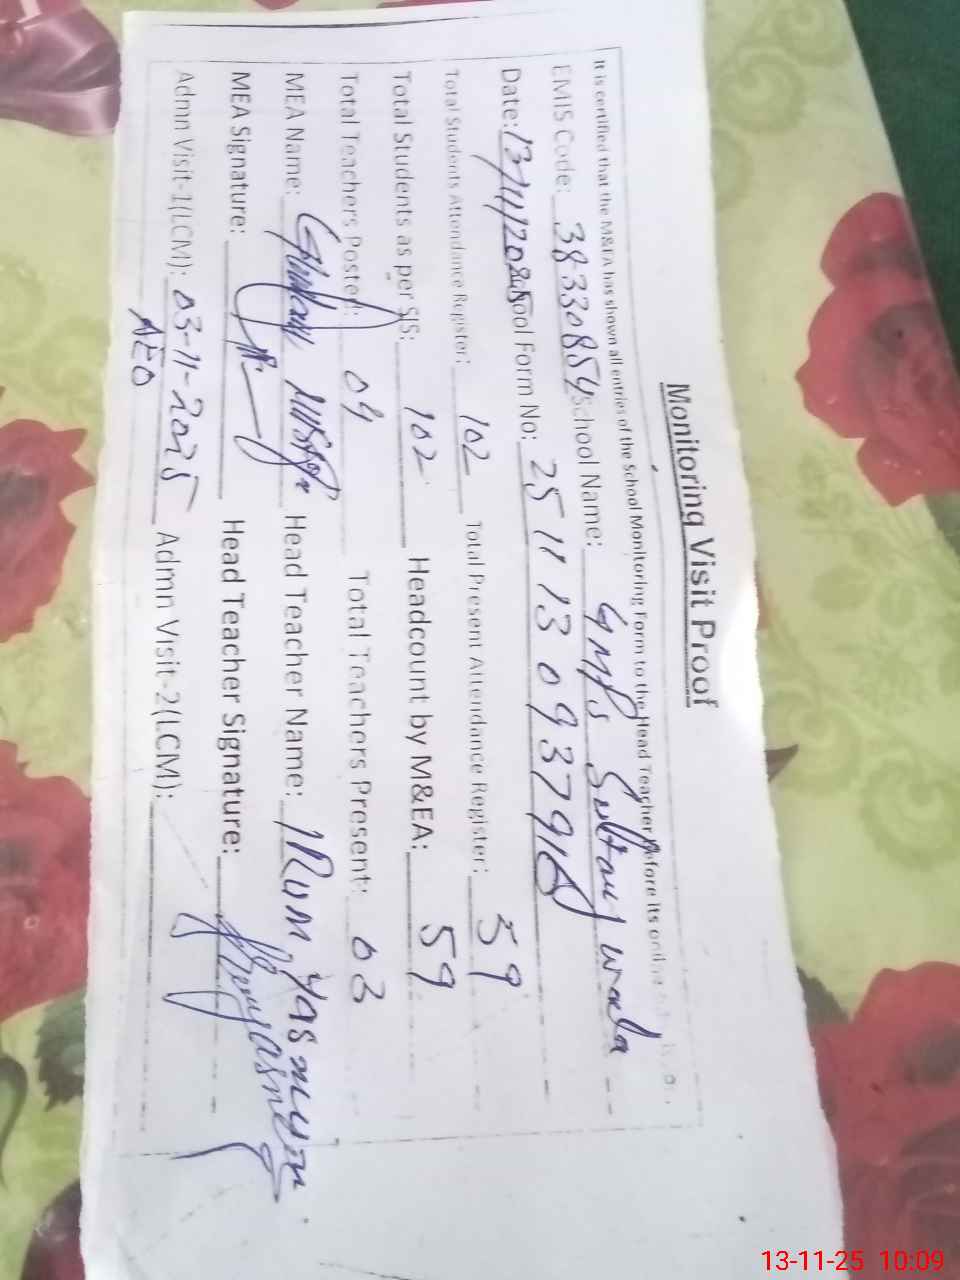 Monitoring Visit Proof
It is certified that the M&EA has shown all entries of the School Monitoring Form to the Head Teacher before its
EMIS Code: 38330854 School Name: GMPS Sultan wala
Date: 13/11/2025 School Form No: 25 11 13 09379
Total Students Attendance Register: 102 Total Present Attendance Register: 59
Total Students as per SIS: 102 Headcount by M&EA: 59
Total Teachers Posted: 04 Total Teachers Present: 03
MEA Name: Ghulam Head Teacher Name: Irum Yasmeen
MEA Signature: Head Teacher Signature:
Admn Visit-1(LCM): 03-11-2025 Admn Visit-2(LCM):
AEO
13-11-25 10:09